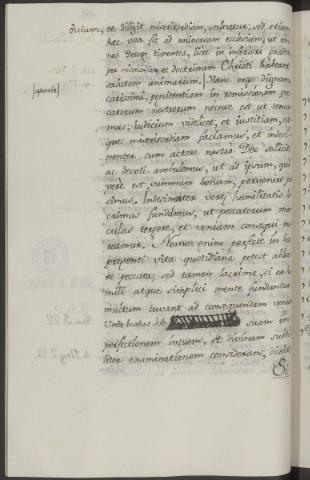 dicium, et diligit misericordiam, salvatur, sed etiam
hac vox fit ad universam ecclesiam, ut om-
nes Deum timentes, licet in inferiori gradu,
per misericordiam et doctrinam Christi habeant
salutem animarum. | Nunc ergo dignam,
|aparte|
carissimi, penitentiam in remissionem pe-
catorum nostrorum necesse est ut tenea-
mus; iudicium videlicet, et justitiam, at-
que misericordiam faciamus, et indesi-
nenter cum actore nostro Deo solliciti
ac devoti ambulemus, ut ad ipsum, qui
vere est summum bonum, pervenire pos-
simus. Indesinenter vere humilitatis la-
crimas fundamus, ut peccatorum ma-
culas tergere, et veniam consequi me-
reamur. Nemo enim perfecte in hac
presenti vita quotidiana potest abla-
te peccata; sed tamen lacrima, si ex hu-
mili atque simplici mente fundantur
multum iuvant ad consequendam veniam
Unde beatus Job suam im-
perfectionem intuens, et divinam subti-
liter examinationem considerans, dicebat